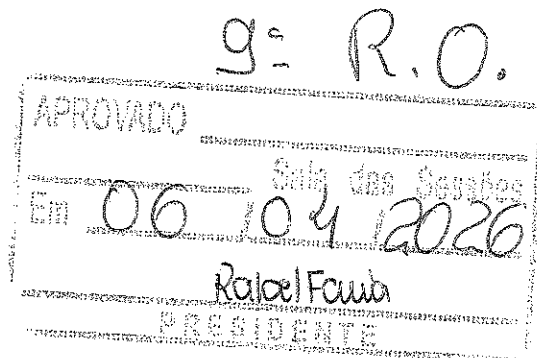 9ª R.O.
APROVADO
Sala das Sessões
Em 06 / 04 / 2026
Rafael Faria
PRESIDENTE